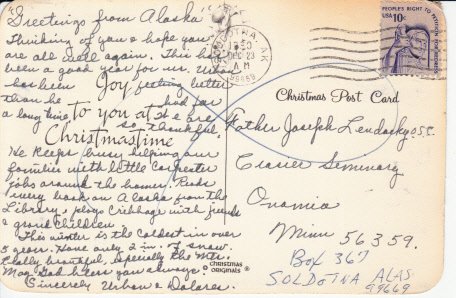 "Greetings from Alaska"
Thinking of you & hope you
are all well again. This has
been a good year for us. Urban
has been feeling better
than he had for
a long time. We are
so thankful.
Joy
to you at
Christmastime
He keeps busy helping our
families with little carpenter
jobs around the homes. Reads
every book on Alaska from the
Library & plays Cribbage with friends
& grand children.
This winter is the coldest in over
5 years. Have only 2 in. of snow.
Really beautiful, especially the Mts.
May God bless you always.
Sincerely Urban & Dolores.
CHRISTMAS
ORIGINALS
SOLDOTNA, AK
1980
DEC 23
AM
PEOPLE'S RIGHT TO PETITION FOR REDRESS
USA 10c
Christmas Post Card
Father Joseph O.S.C.
Crosier Seminary
Onamia
Minn 56359.
Box 367
SOLDOTNA ALAS
99669